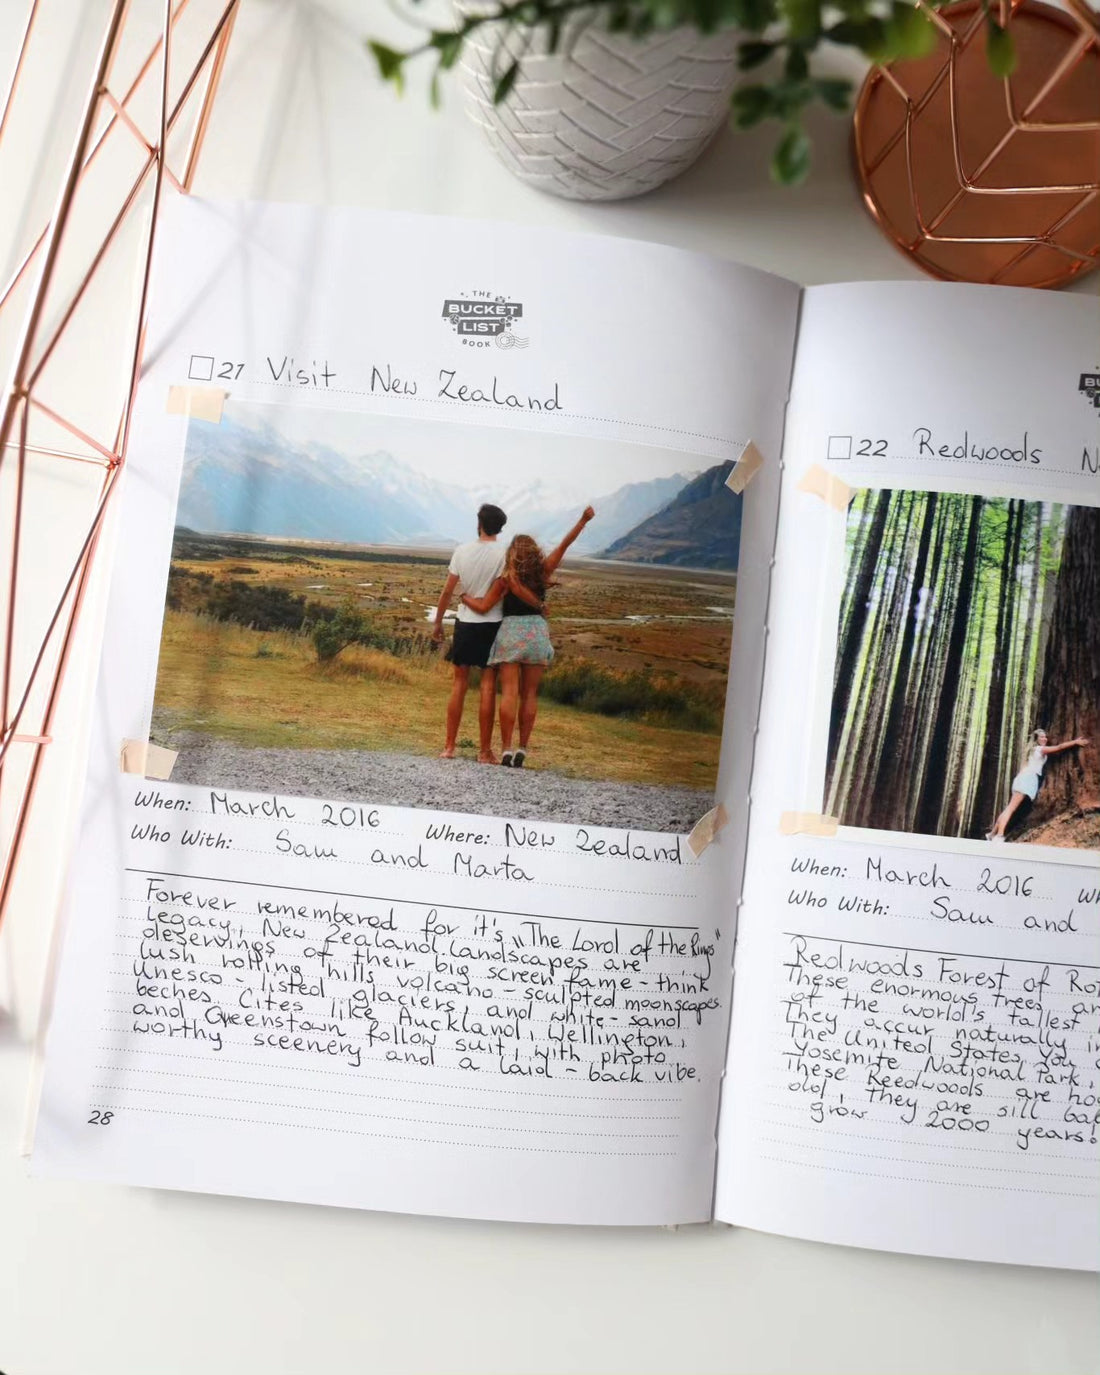 THE
BUCKET
LIST
BOOK
21 Visit New Zealand
When: March 2016 Where: New Zealand
Who With: Sam and Marta
Forever remembered for it's „The Lord of the Rings"
legacy, New Zealand landscapes are
deservings of their big screen fame - think
lush rolling hills volcano - sculpted moonscapes.
Unesco - listed glaciers, and white - sand
beches. Cites like Auckland, Wellington,
and Queenstown follow suit, with photo
worthy sceenery and a laid - back vibe.
28
BU
22 Redwoods N
When: March 2016 Wh
Who With: Sam and
Redwoods Forest of Rot
These enormous trees ar
of the world's tallest
They accur naturally in
The United States, you c
Yosemite National Park,
These Reedwoods are
old, they are sill
grow 2000 years!